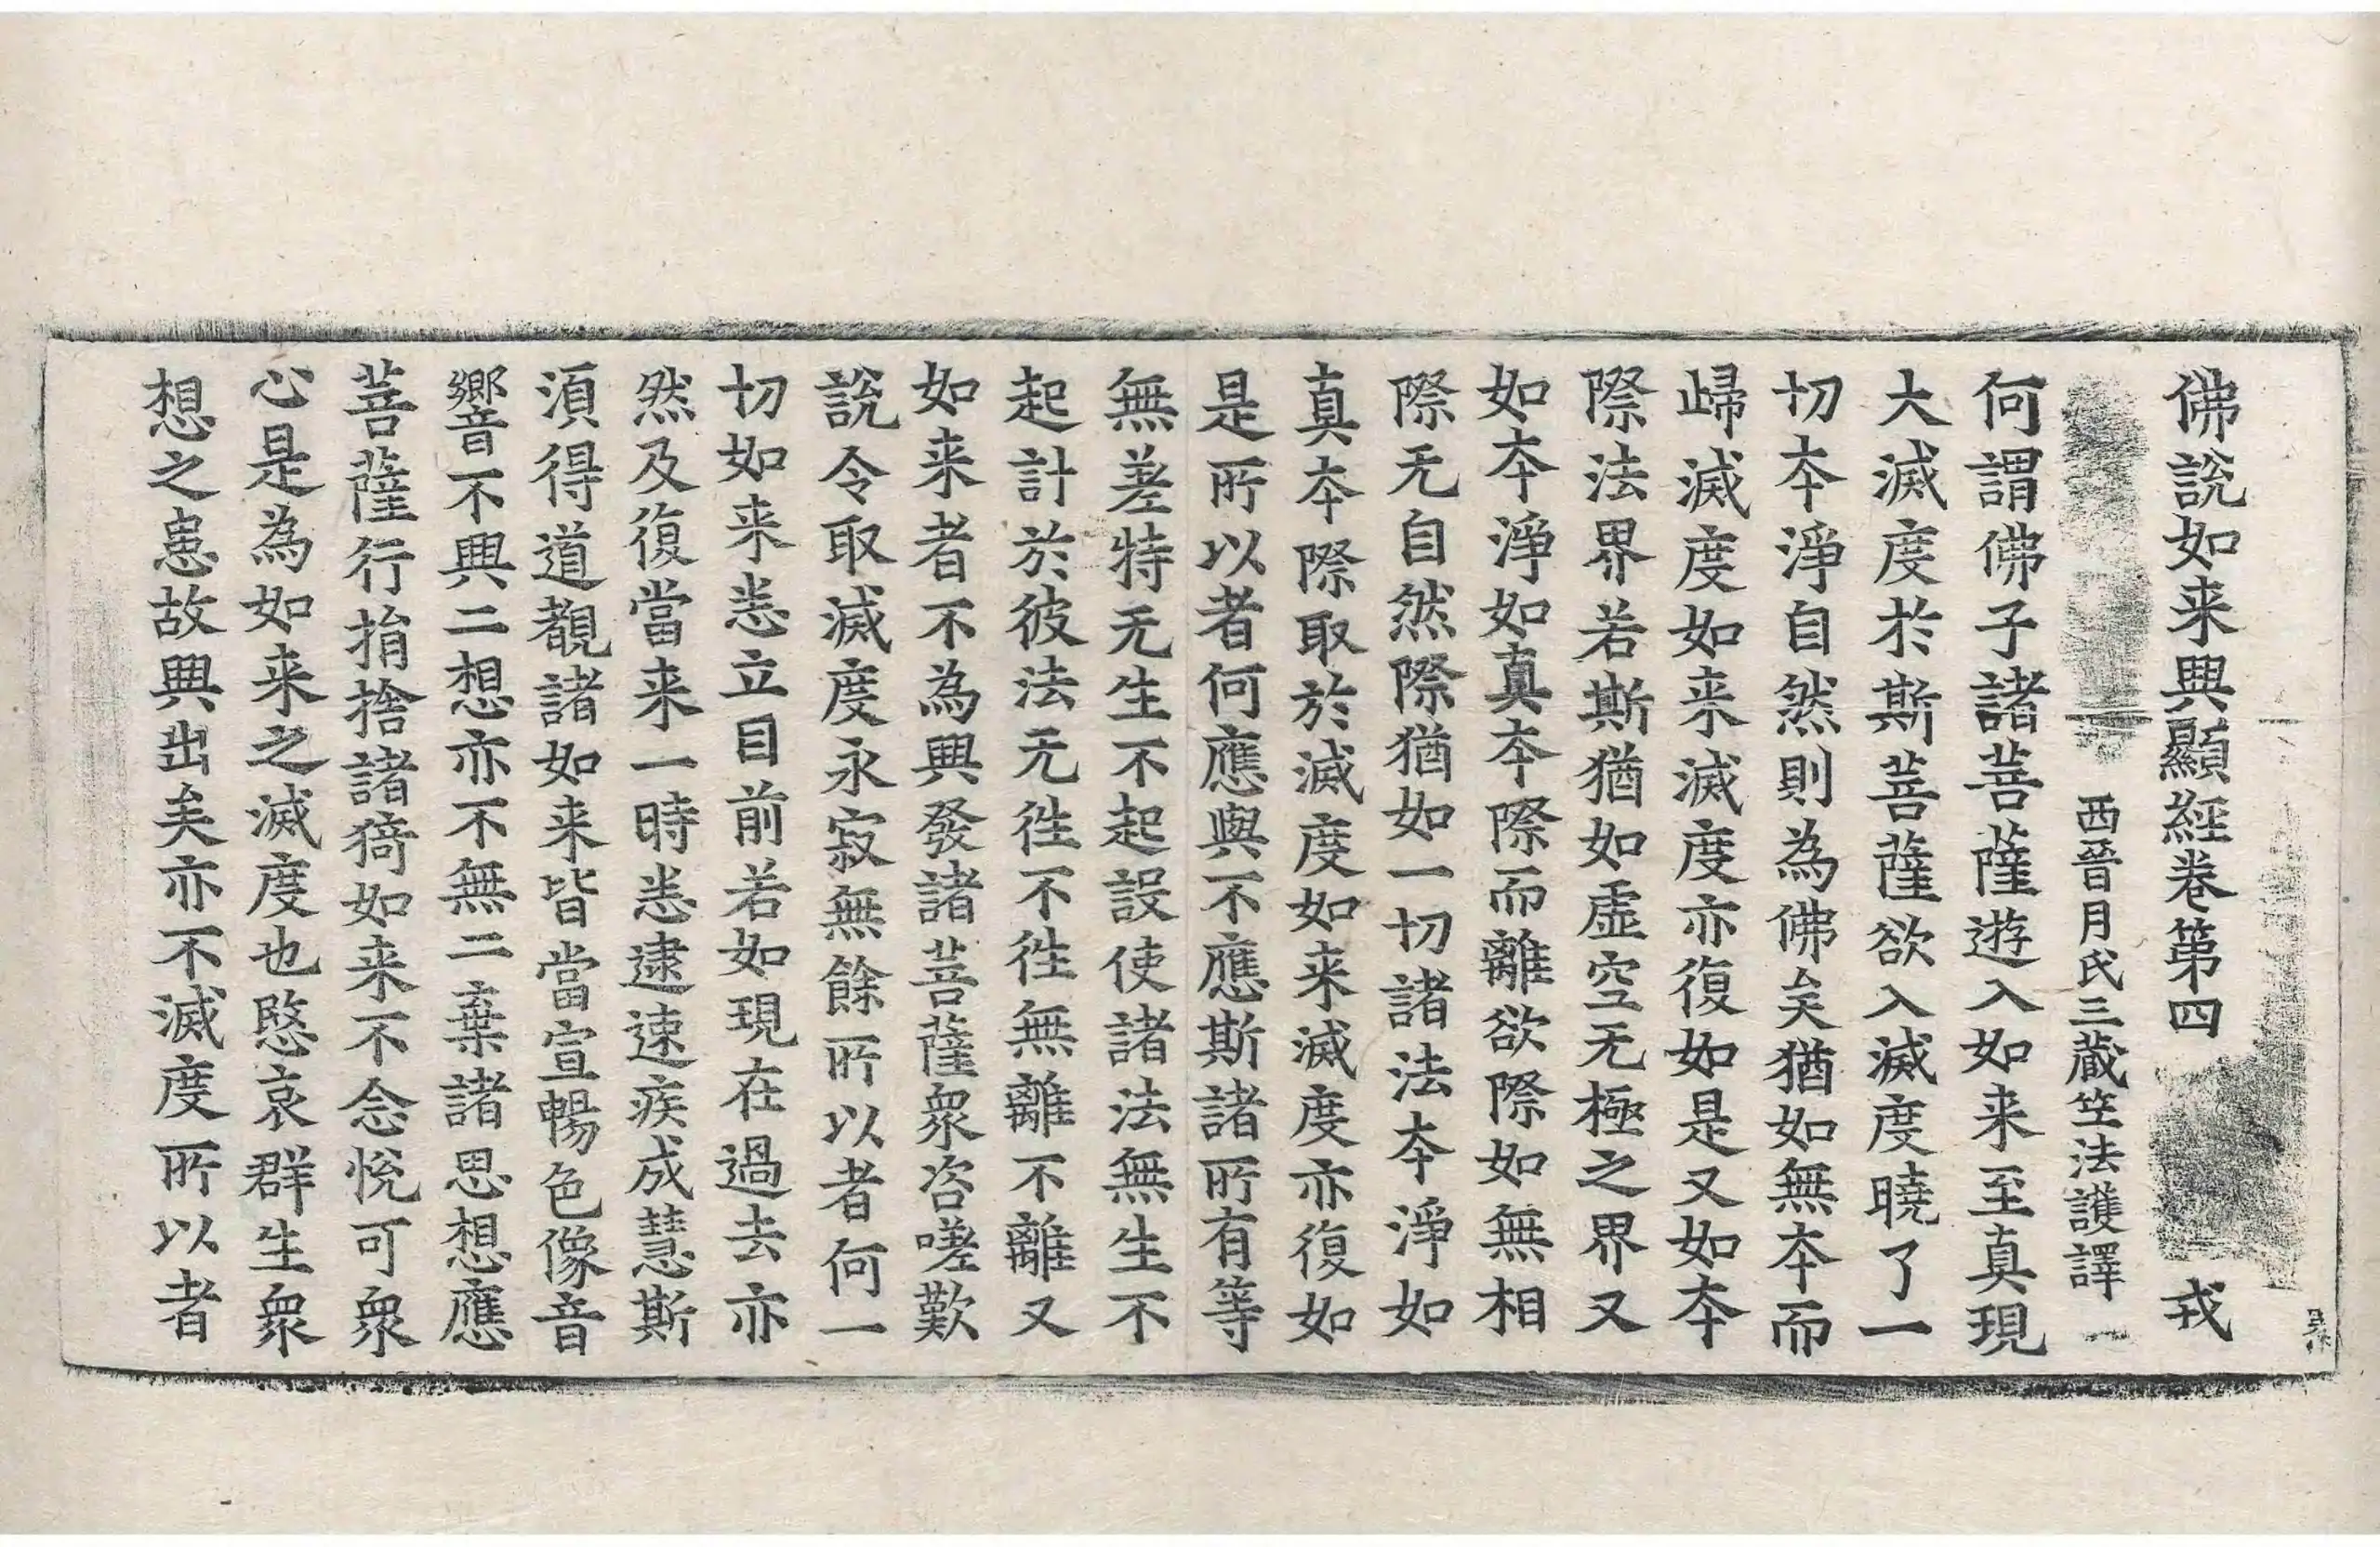 佛說如来興顯經卷第四 戎
西晉月氏三藏竺法護譯 一
何謂佛子諸菩薩遊入如来至真現
大滅度於斯菩薩欲入滅度曉了一
切夲淨自然則為佛矣猶如無夲而
歸滅度如来滅度亦復如是又如夲
際法界若斯猶如虛空无極之界又
如夲淨如真夲際而離欲際如無相
際无自然際猶如一切諸法夲淨如
真夲際取於滅度如来滅度亦復如
是所以者何應與不應斯諸所有等
無差特无生不起設使諸法無生不
起計於彼法无徃不徃無離不離又
如来者不為興發諸菩薩衆咨嗟歎
說令取滅度永寂無餘所以者何一
切如来悉立目前若如現在過去亦
然及復當来一時悉逮速疾成慧斯
湏得道覩諸如来皆當宣暢色像音
響不興二想亦不無二棄諸思想應
菩薩行捐捨諸猗如来不念悅可衆
心是為如来之滅度也愍哀群生衆
想之患故興出矣亦不滅度所以者